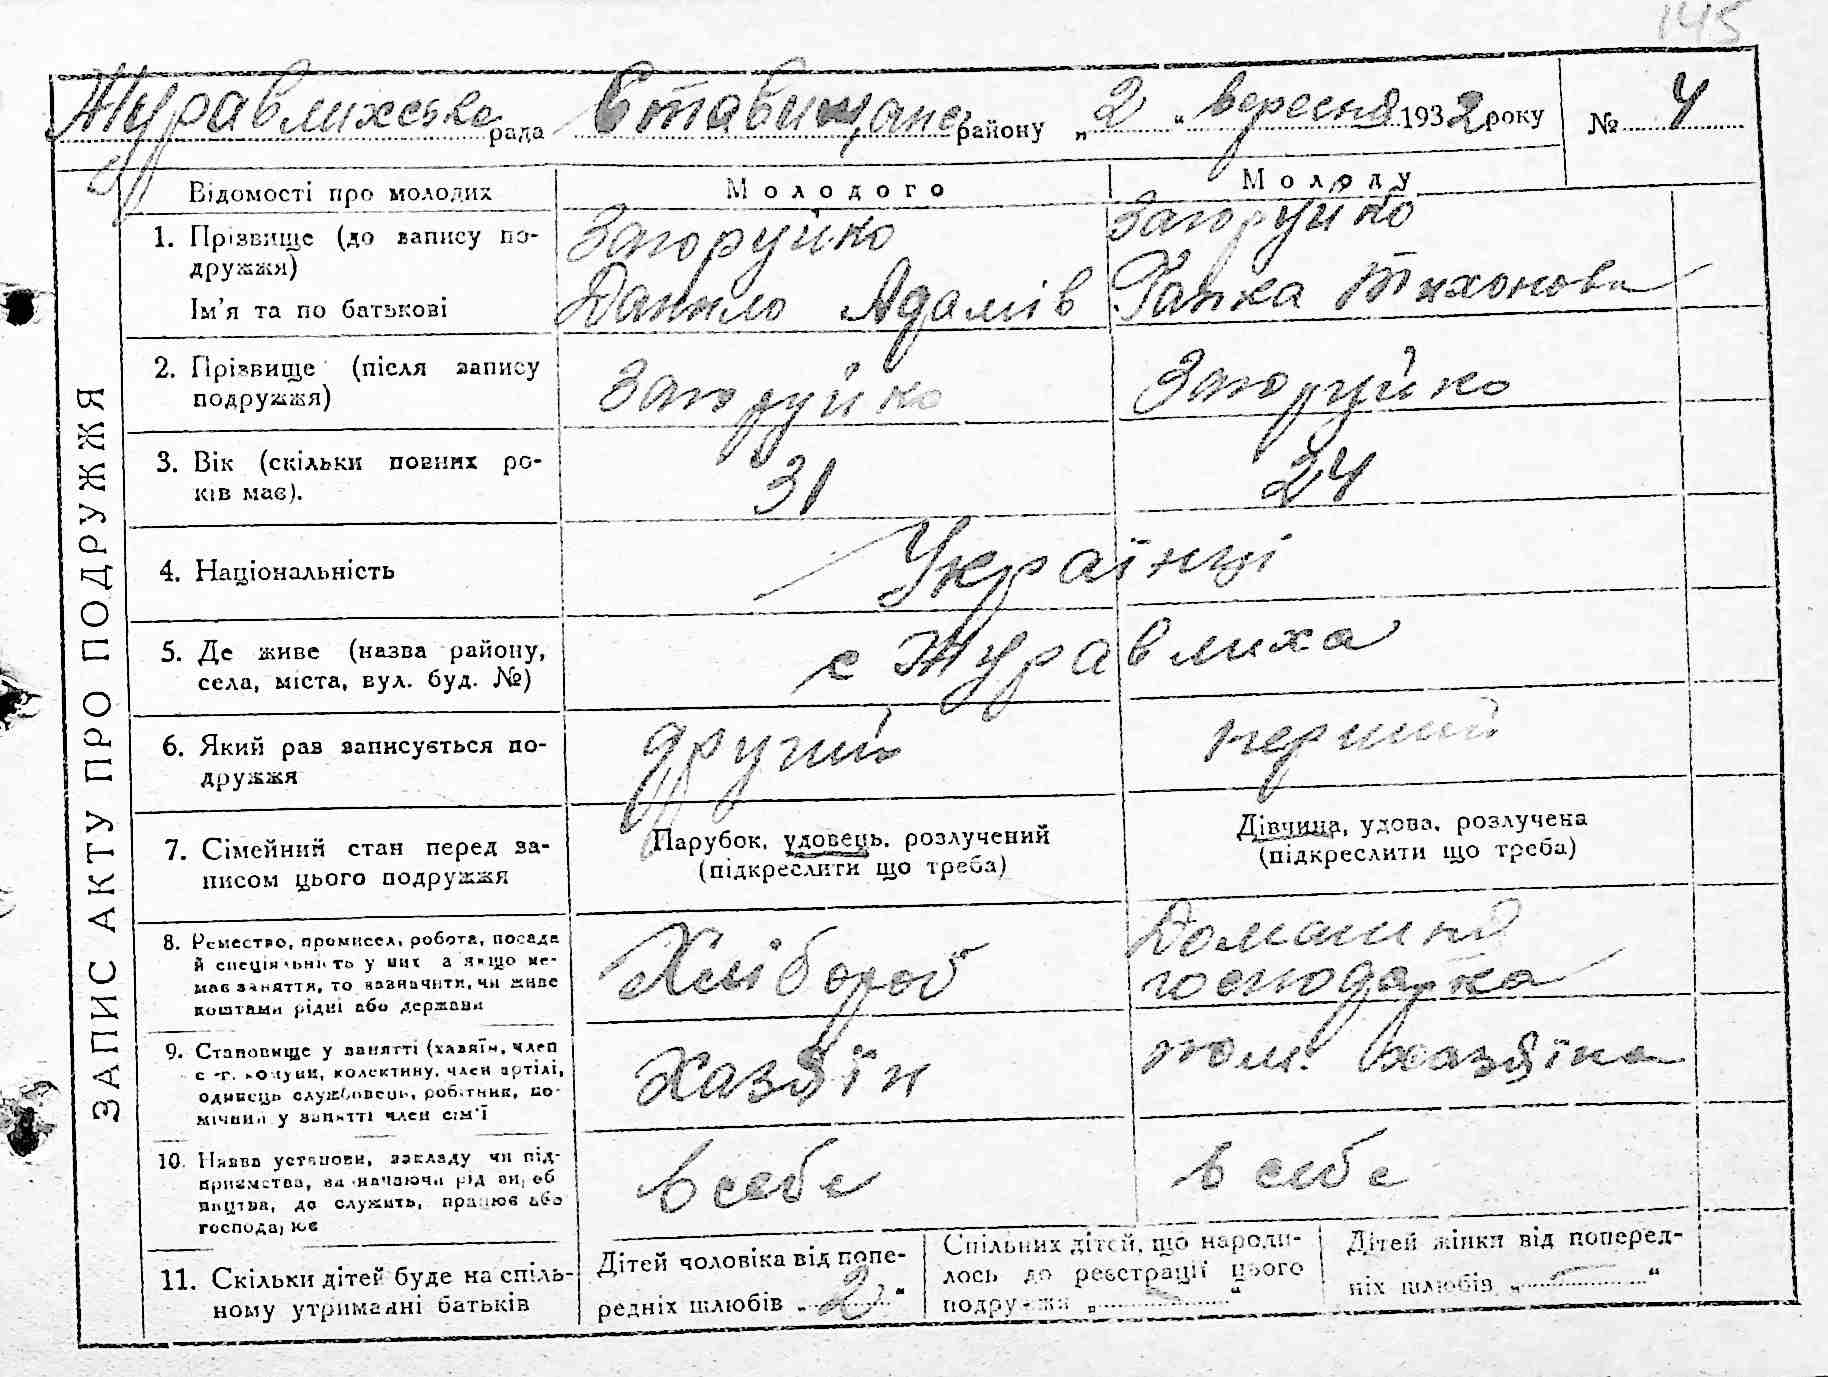 145
Журавлихське рада Ставищанс району „2“ вересня 1932 року № 4
ЗАПИС АКТУ ПРО ПОДРУЖЖЯ
Відомості про молодих
Молодого
Молоду
1. Прізвище (до запису по-
дружжя)
Ім'я та по батькові
Загоруйко
Данило Адамів
Загоруйко
Ганка Тихонова
2. Прізвище (після запису
подружжя)
Загоруйко
Загоруйко
3. Вік (скільки повних ро-
ків має).
31
24
4. Національність
Українці
5. Де живе (назва району,
села, міста, вул. буд. №)
с Журавлиха
6. Який раз записується по-
дружжя
другий
перший
7. Сімейний стан перед за-
писом цього подружжя
Парубок, удовець, розлучений
(підкреслити що треба)
Дівчина, удова, розлучена
(підкреслити що треба)
8. Ремество, промисел, робота, посада
й спеціяльність у них а якщо не-
має заняття, то зазначити, чи живе
коштами рідні або держави
Хлібороб
Домашня
господарка
9. Становище у занятті (хазяїн, член
с.-г. комуни, колективу, член артілі,
одинець службовець, робітник, по-
мічний у занятті член сім'ї
Хазяїн
пом. хазяїна
10. Назва установи, закладу чи під-
приємства, зазначаючи рід вироб
ництва, де служить, працює або
господарює
в себе
в себе
11. Скільки дітей буде на спіль-
ному утриманні батьків
Дітей чоловіка від попе-
редніх шлюбів „2“
Спільних дітей, що народи-
лось до реєстрації цього
подружжя „-“
Дітей жінки від поперед-
ніх шлюбів „-“